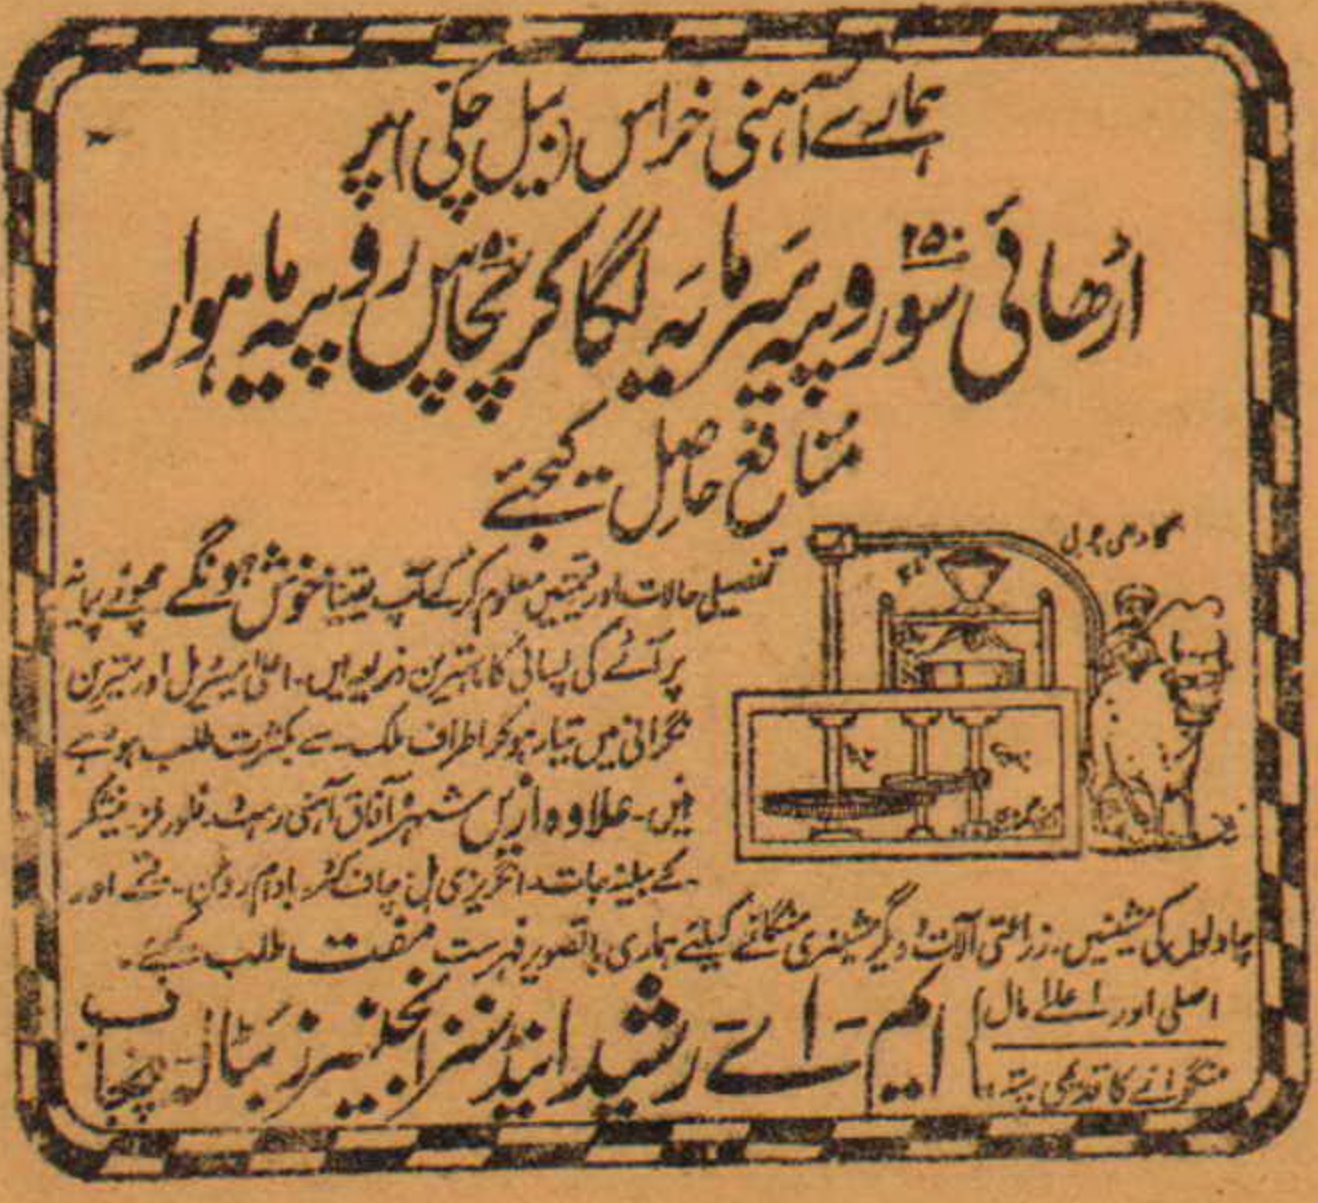 ہمارے آہنی خراس (بیل چکی) پر
اڑھائی سو ۲۵۰ روپیہ سرمایہ لگا کر پچاس روپیہ ماہوار
منافع حاصل کیجئے
تفصیلی حالات اور قیمتیں معلوم کر کے آپ یقیناً خوش ہونگے چھوٹے پیمانہ
پر آٹے کی پسائی کا بہترین ذریعہ ہیں۔ اعلیٰ میٹریل اور بہترین
نگرانی میں تیار ہو کر اطراف ملک سے بکثرت طلب ہو رہے
ہیں۔ علاوہ ازیں شہرہ آفاق آہنی رہٹ۔ فلور ملز۔ نیشکر
کے بیلنہ جات۔ انگریزی ہل۔ چاف کٹر۔ بادام روغن۔ اور
چاولوں کی مشینیں۔ زراعتی آلات و دیگر مشینری منگانے کیلئے ہماری باتصویر فہرست مفت طلب کیجئے۔
اصلی اور اعلےٰ مال
منگوانے کا قدیمی پتہ:
ایم۔اے رشید اینڈ سنز انجنیئرز بٹالہ پنجاب